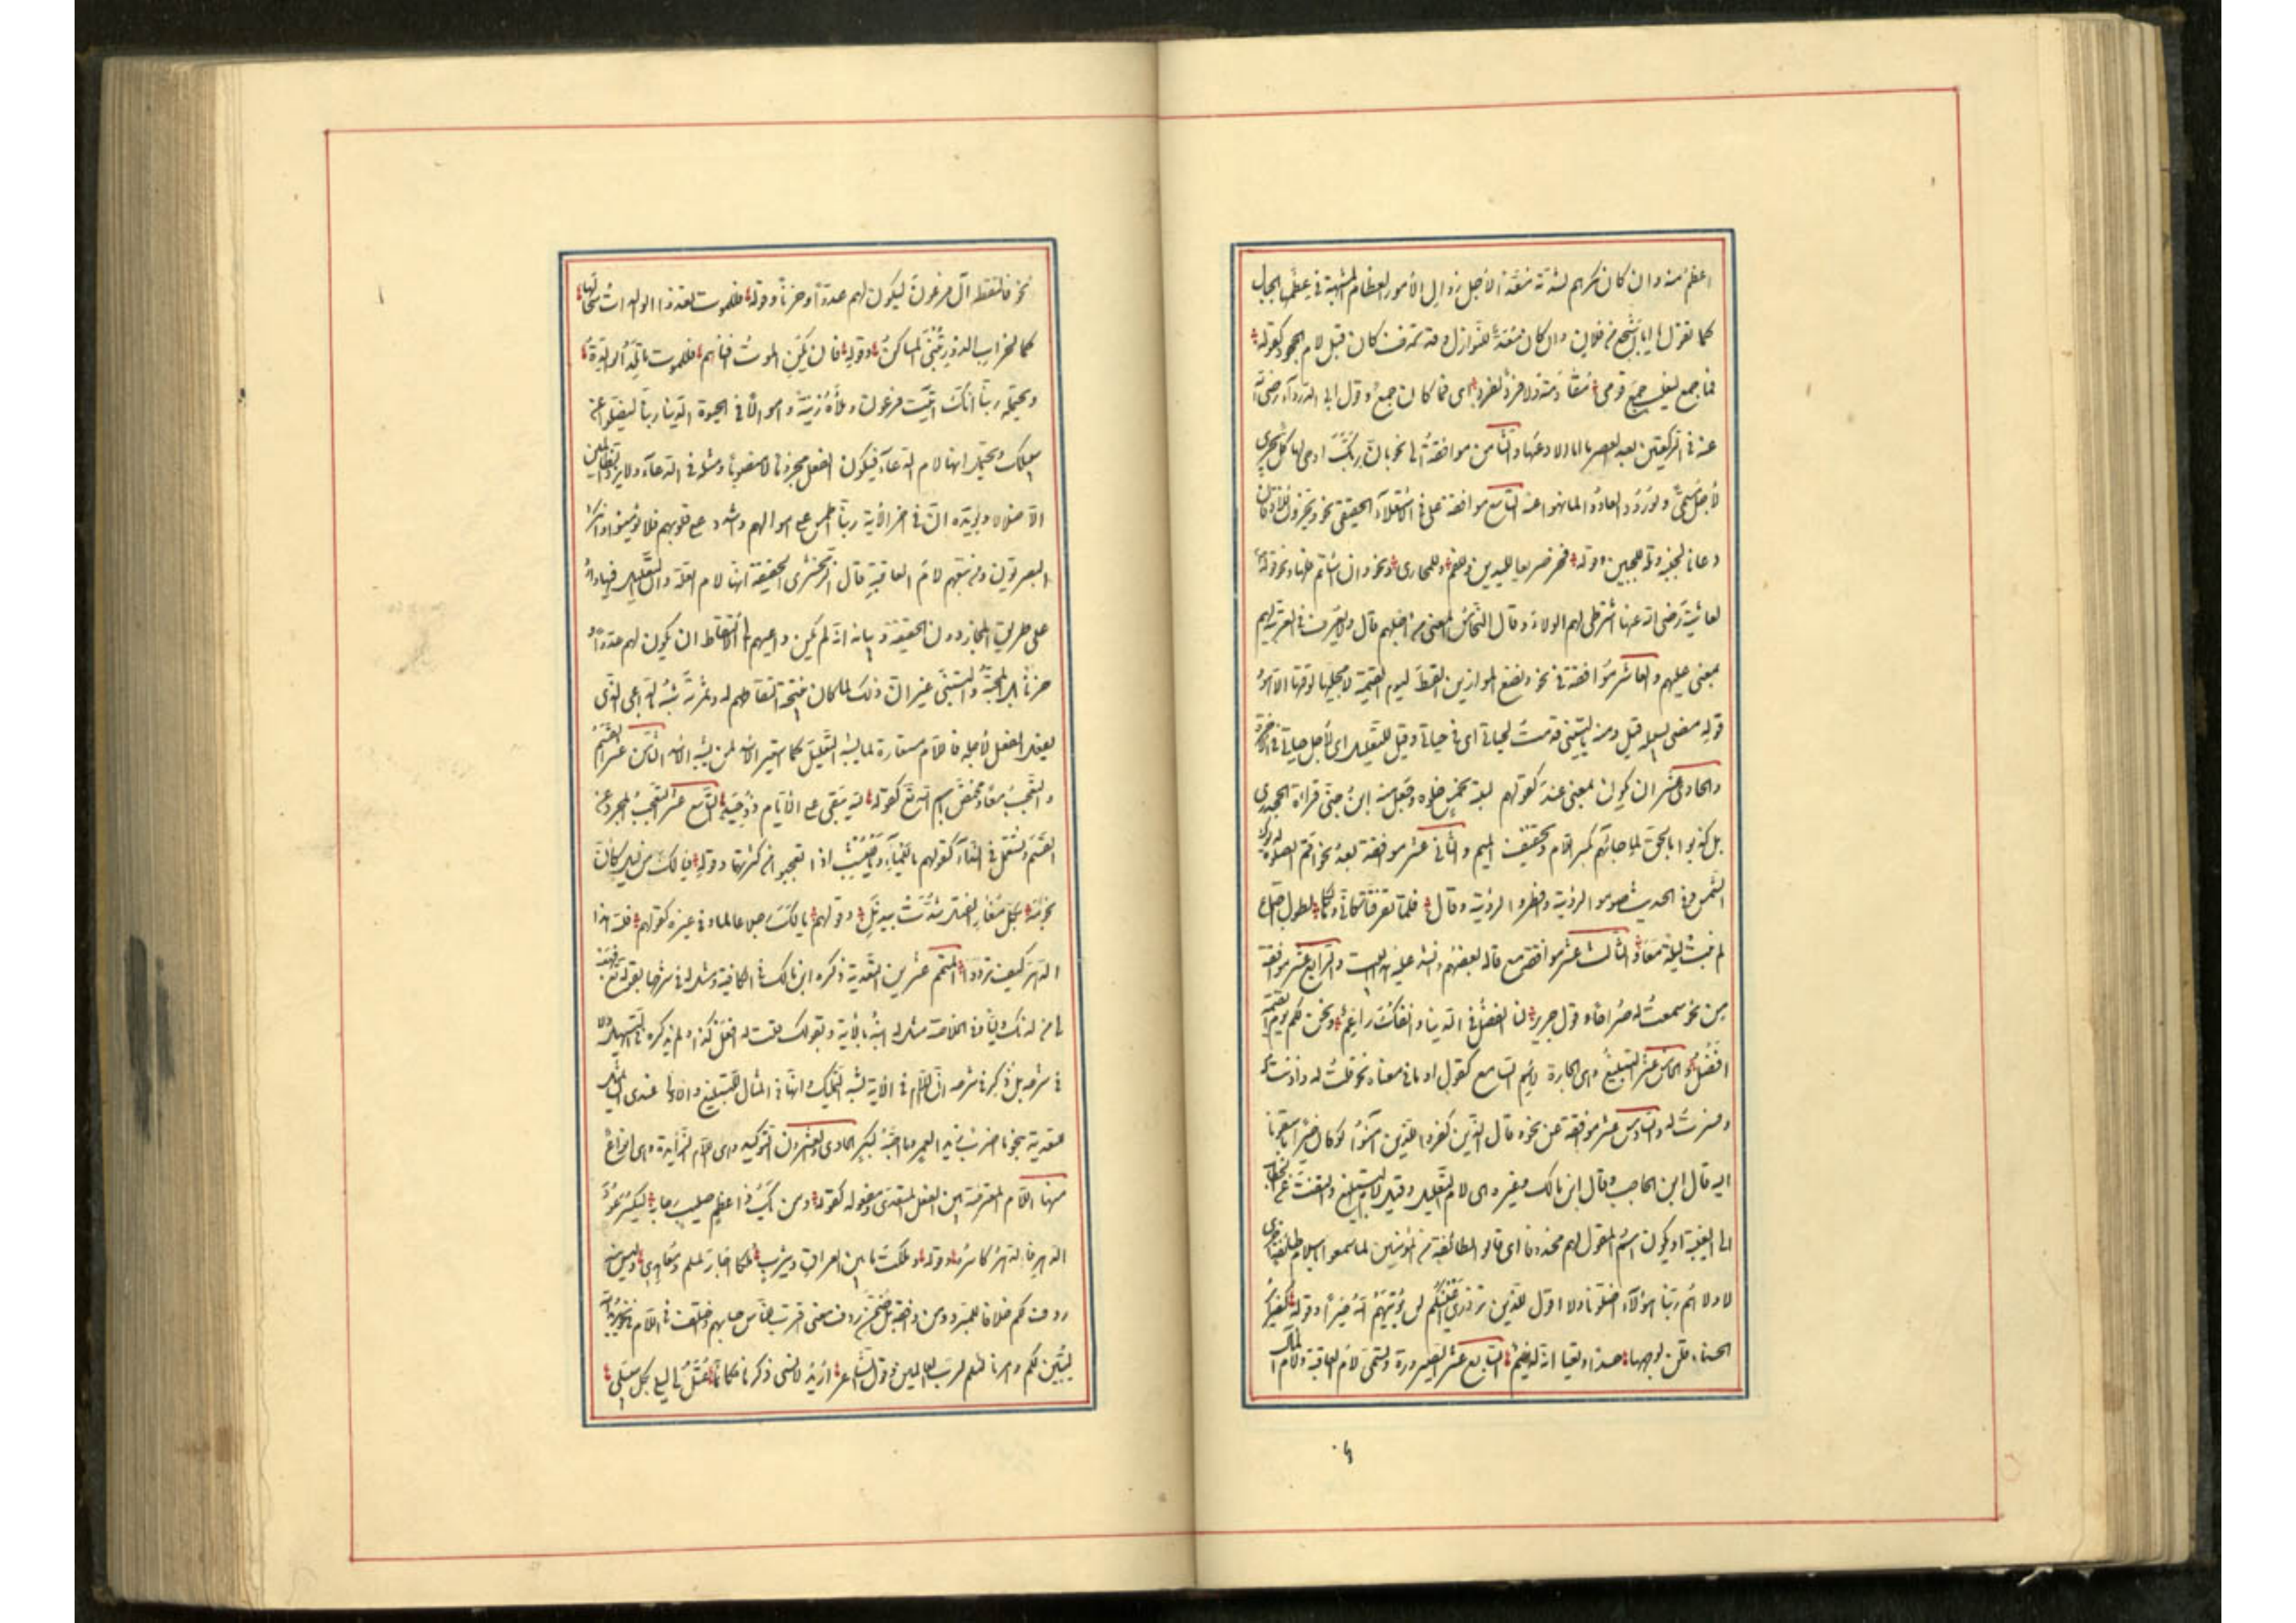 اعظم منه وان كان مكرهم لشدته معدّا لأجل زوال الأمور العظام المشبهة في عظمها بالجبال
كما تقول انا اشجع من فلان وان كان معدّا للنوازل وقد تحذف كان قبل لام الجحود كقوله
فما جمع ليغلب جمع قومى مقاومة ولا فرد لفرد اى فما كان جمع وقول ابى الدرداء رضى الله
عنه فى الركعتين بعد العصر ما انا لأدعهما والثامن موافقة الى نحو بان ربك اوحى لها كل يجرى
لأجل مسمى ولو ردوا لعادوا لما نهوا عنه التاسع موافقة على فى الاستعلاء الحقيقى نحو ويخرون للأذقان
دعانا لجنبه وتله للجبين وقوله فخر صريعا لليدين وللفم والمجازى نحو وان اسأتم فلها ونحو قوله
لعائشة رضى الله عنها اشترطى لهم الولاء وقال النحاس المعنى من اجلهم قال ولا يعرف فى العربية لهم
بمعنى عليهم والعاشر موافقة فى نحو ونضع الموازين القسط ليوم القيمة لا يجليها لوقتها الا هو
قوله مضى لسبيله قيل ومنه يا ليتنى قدمت لحياتى اى فى حياتى وقيل للتعليل اى لأجل حياتى فى الآخرة
والحادى عشر ان يكون بمعنى عند كقولهم كتبته لخمس خلون وجعل منه ابن جنى قراءة الجحدرى
بل كذبوا بالحق لما جائهم بكسر اللام وتخفيف الميم والثانى عشر موافقة بعد نحو اقم الصلوة لدلوك
الشمس وفى الحديث صوموا لرؤيته وافطروا لرؤيته وقال فلما تفرقنا كأنى ومالكا لطول اجتماع
لم نبت ليلة معا والثالث عشر موافقة مع قاله بعضهم وانشد عليه هذا البيت والرابع عشر موافقة
من نحو سمعت له صراخا وقول جرير لنا الفضل فى الدنيا وانفك راغم ونحن لكم يوم القيمة
افضل والخامس عشر التبليغ وهى الجارة لاسم السامع لقول او ما فى معناه نحو قلت له واذنت له
وفسرت له والسادس عشر موافقة عن نحو وقال الذين كفروا للذين آمنوا لو كان خيرا ما سبقونا
اليه قاله ابن الحاجب وقال ابن مالك وغيره هى لام التعليل وقيل لام التبليغ والتفت عن الخطاب
الى الغيبة او يكون اسم المقول لهم محذوفا اى قالوا لطائفة من المؤمنين لما سمعوا باسلام طائفة اخرى
لأوليهم ربنا هؤلاء اضلونا ولا اقول للذين تزدرى اعينكم لن يؤتيهم الله خيرا وقوله كضرائر
الحسناء قلن لوجهها حسدا وبغيا انه لدميم السابع عشر الصيرورة وتسمى لام العاقبة ولام المآل
نحو فالتقطه آل فرعون ليكون لهم عدوّا وحزنا وقوله فللموت تغذو الوالدات سخالها
كما لخراب الدور تبنى المساكن وقوله فان يكن الموت افناهم فللموت ما تلد الوالدة
ويحتمله ربنا انك آتيت فرعون وملأه زينة واموالا فى الحيوة الدنيا ربنا ليضلوا عن
سبيلك ويحتمل انها لام الدعاء فيكون الفعل مجزوما لا منصوبا ومثله فى الدعاء ولا تزد الظالمين
الا ضلالا ويؤيده ان فى آخر الآية ربنا اطمس على اموالهم واشدد على قلوبهم فلا يؤمنوا وانكر
البصريون ومن تبعهم لام العاقبة قال الزمخشرى والتحقيق انها لام العلة وان التعليل فيها وارد
على طريق المجاز دون الحقيقة وبيانه انه لم يكن داعيهم الى الالتقاط ان يكون لهم عدوّا و
حزنا بل المحبة والتبنى غير ان ذلك لما كان نتيجة التقاطهم له وثمرته شبه بالداعى الذى
يفعل الفعل لأجله فاللام مستعارة لما يشبه التعليل كما استعير الاسد لمن يشبه الاسد الثامن عشر القسم
والتعجب معا وتختص باسم الله تع كقوله لله يبقى على الأيام ذو حيد التاسع عشر التعجب المجرد عن
القسم وتستعمل فى النداء كقولهم يا للماء ويا للعشب اذا تعجبوا من كثرتهما وقوله فيا لك من ليل كأن
نجومه بكل مغار الفتل شدت بيذبل وقولهم يا لك رجلا عالما وفى غيره كقولهم لله هذا
الدهر كيف ترددا المتمم عشرين التعدية ذكره ابن مالك فى الكافية ومثل له فى شرحها بقوله تع فهب
لى من لدنك وليا وفى الخلاصة مثل له ابنه بالآية وبقولك قلت له افعل كذا ولم يذكره فى التسهيل ولا
فى شرحه بل ذكر فى شرحه ان اللام فى الآية لشبه التمليك وانها فى المثال للتبليغ والاولى عندى ان يمثل
للتعدية بنحو ما اضرب زيدا لعمرو وما احبه لبكر الحادى والعشرون التوكيد وهى اللام الزائدة وهى انواع
منها اللام المعترضة بين الفعل المتعدى ومفعوله كقوله ومن يك ذا عظم صليب رجا به ليكسر عود
الدهر فالدهر كاسره وقوله وملكت ما بين العراق ويثرب ملكا اجار لمسلم ومعاهد وليس منه
ردف لكم خلافا للمبرد ومن وافقه بل ضمن ردف معنى اقترب للناس حسابهم واختلف فى اللام من نحو يريد الله
ليبين لكم وامرنا لنسلم لرب العالمين وقول الشاعر اريد لأنسى ذكرها فكأنما تمثل لى ليلى بكل سبيل